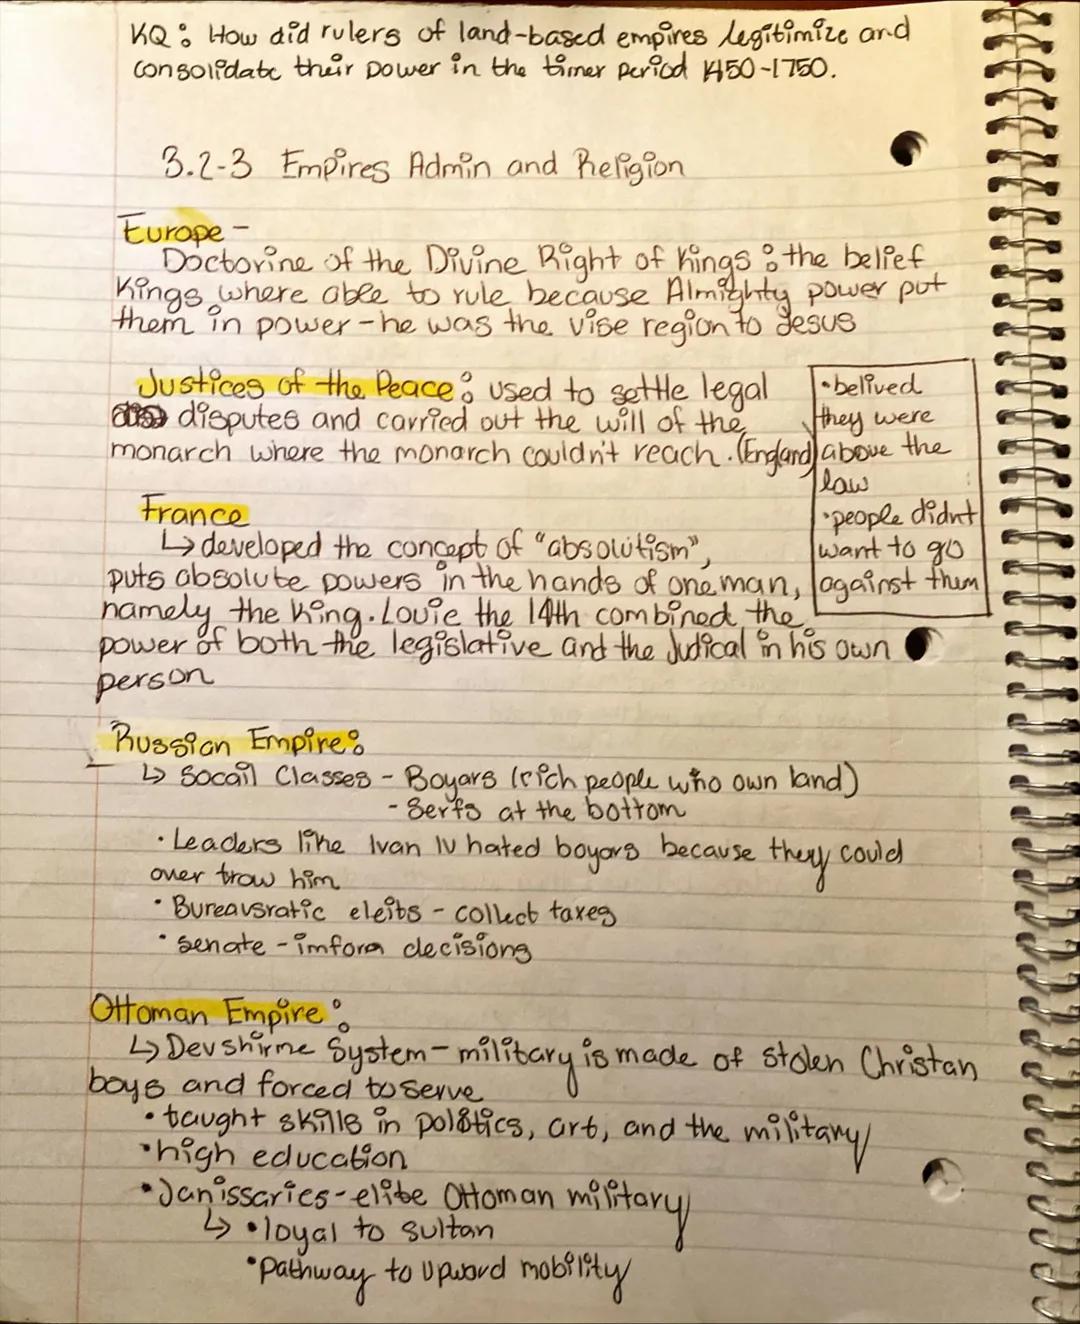 KQ: How did rulers of land-based empires legitimize and
consolidate their power in the timer period 1450-1750.
3.2-3 Empires Admin and Religion
Europe -
Doctorine of the Divine Right of Kings: the belief
Kings where able to rule because Almighty power put
them in power - he was the vise region to Jesus
Justices of the Peace: used to settle legal
disputes and carried out the will of the
monarch where the monarch couldn't reach. (England)
•belived
they were
above the
law
•people didnt
want to go
against them
France
↳ developed the concept of "absolutism",
puts absolute powers in the hands of one man,
namely the King. Louie the 14th combined the
power of both the legislative and the Judical in his own
person
Russian Empire:
↳ Socail Classes - Boyars (rich people who own land)
- Serfs at the bottom
• Leaders like Ivan IV hated boyars because they could
over trow him
• Bureavsratic eleits - collect taxes
• Senate - imform decisions
Ottoman Empire:
↳ Devshirme System - military is made of stolen Christan
boys and forced to serve
• taught skills in politics, art, and the military
• high education
• Janissaries - elite Ottoman military
↳ • loyal to sultan
• Pathway to upward mobility